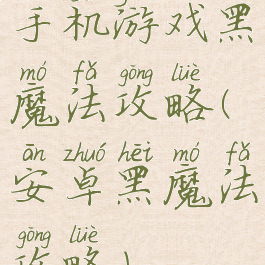 手机游戏黑
mó fǎ gōng lüè
魔法攻略(
ān zhuó hēi mó fǎ
安卓黑魔法
gōng lüè
攻略)